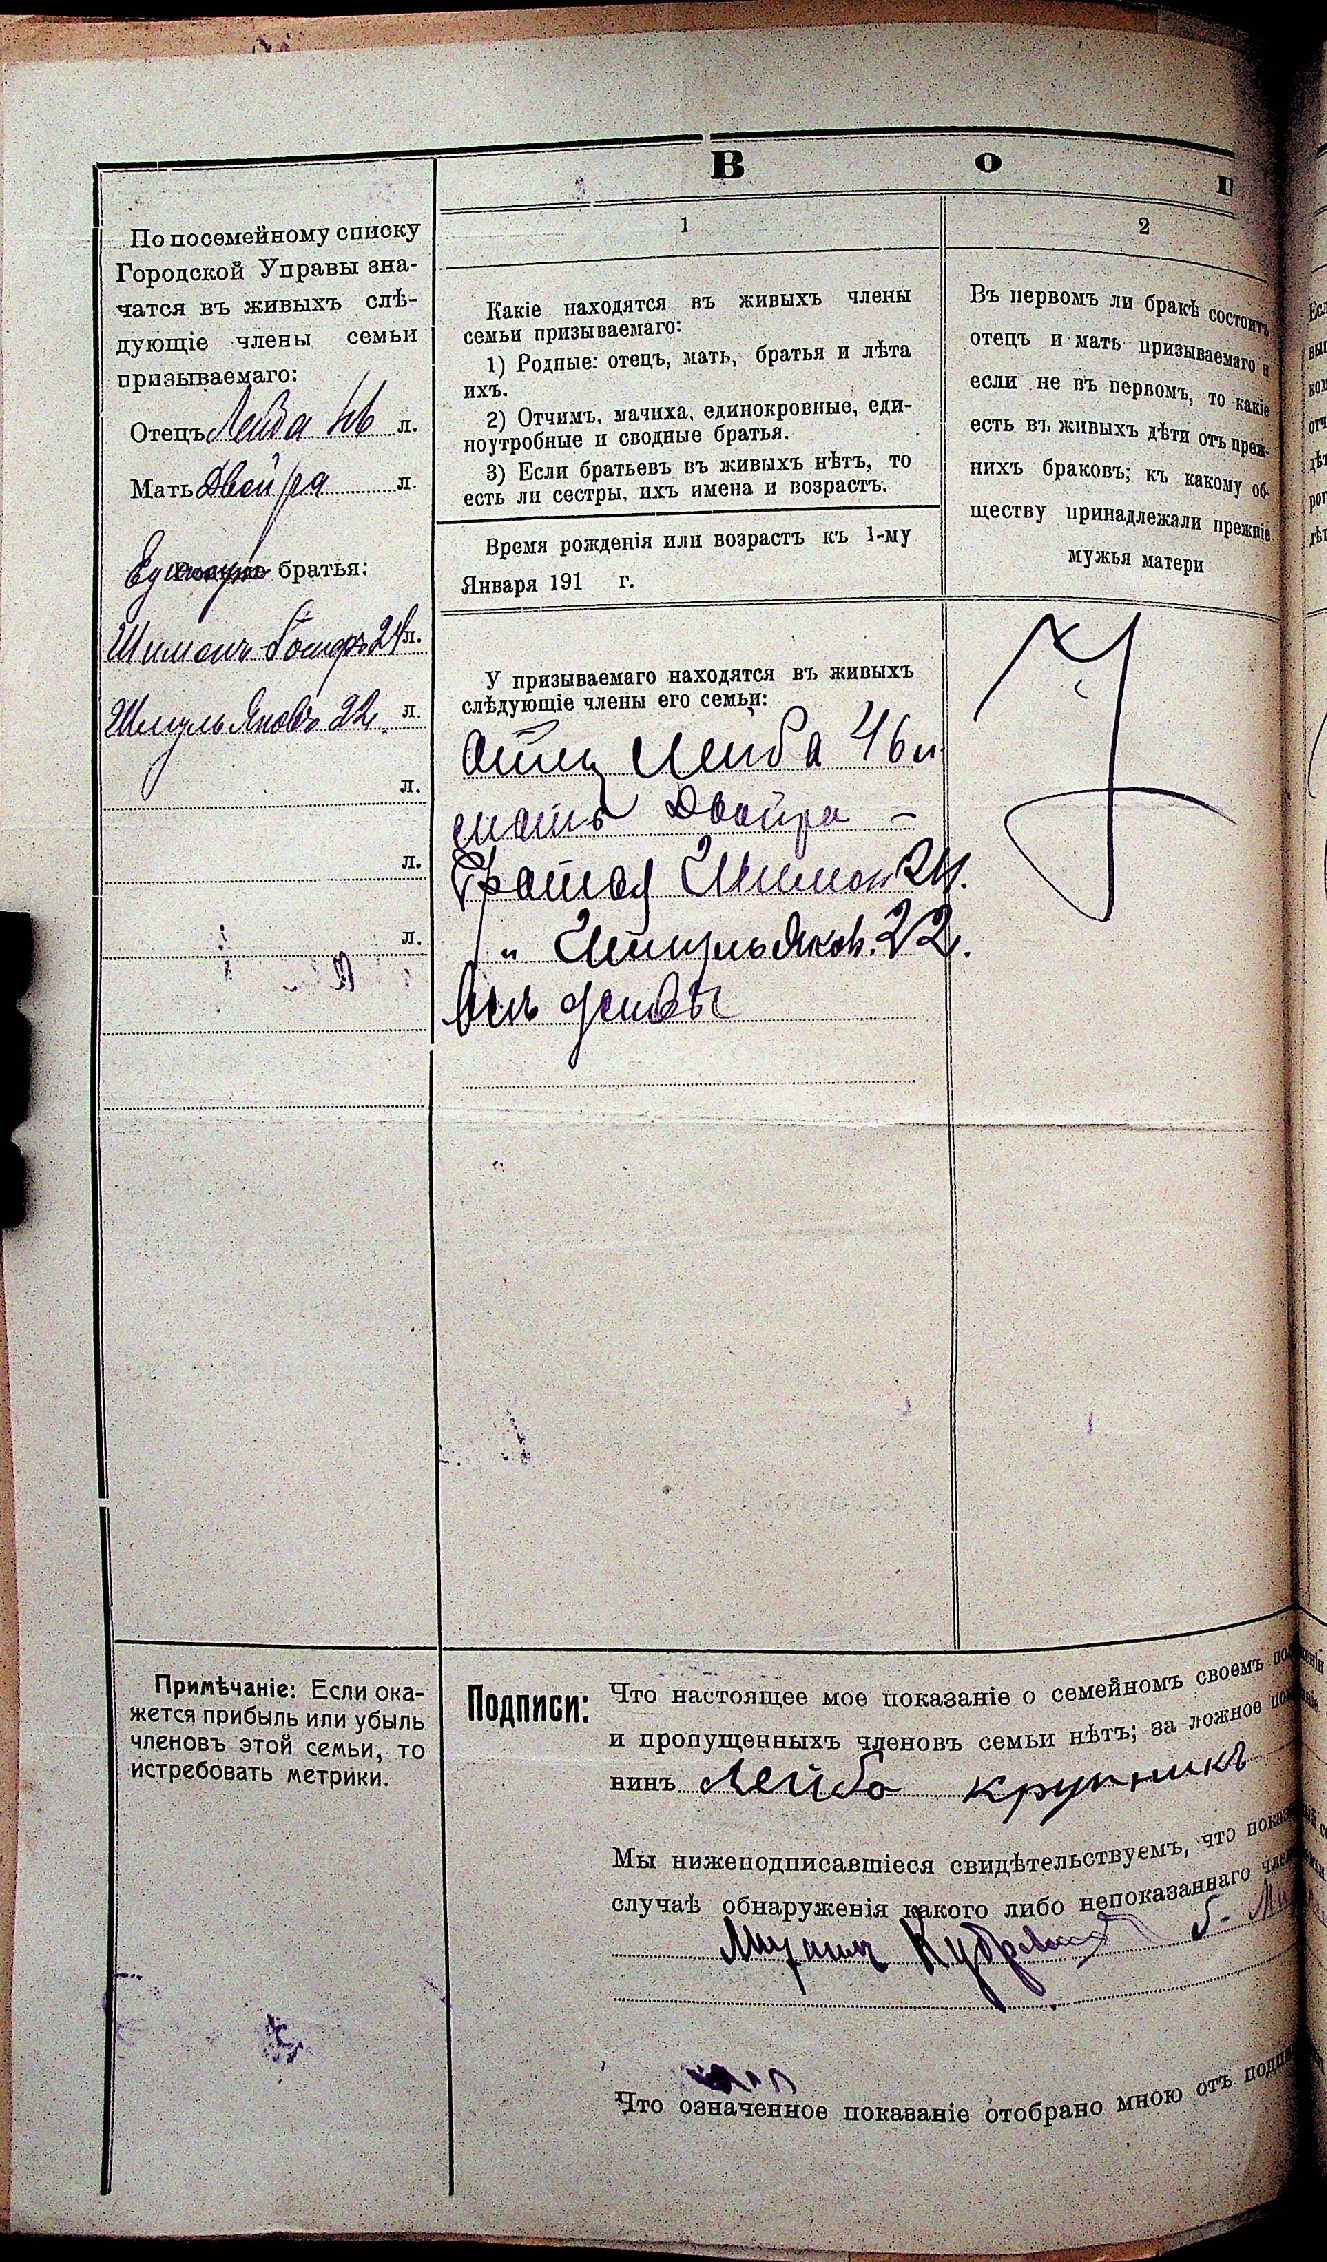 В о п
По посемейному списку
Городской Управы зна-
чатся въ живыхъ слѣ-
дующіе члены семьи
призываемаго:
Отецъ Лейба 46 л.
Мать Двойра л.
братья:
Шимонъ 24 л.
Шмуль Яковъ 22 л.
л.
л.
л.
1
Какіе находятся въ живыхъ члены
семьи призываемаго:
1) Родные: отецъ, мать, братья и лѣта
ихъ.
2) Отчимъ, мачиха, единокровные, еди-
ноутробные и сводные братья.
3) Если братьевъ въ живыхъ нѣтъ, то
есть ли сестры, ихъ имена и возрастъ.
Время рожденія или возрастъ къ 1-му
Января 191 г.
У призываемаго находятся въ живыхъ
слѣдующіе члены его семьи:
отец Лейба 46 л.
мать Двойра –
братья Шимон 24.
" Шмуль Яков. 22.
2
Въ первомъ ли бракѣ состоитъ
отецъ и мать призываемаго и
если не въ первомъ, то какіе
есть въ живыхъ дѣти отъ преж-
нихъ браковъ; къ какому об-
ществу принадлежали прежніе
мужья матери
Примѣчаніе: Если ока-
жется прибыль или убыль
членовъ этой семьи, то
истребовать метрики.
Подписи: Что настоящее мое показаніе о семейномъ своемъ
и пропущенныхъ членовъ семьи нѣтъ; за ложное
нинъ Лейба крупникъ
Мы нижеподписавшіеся свидѣтельствуемъ, что
случаѣ обнаруженія какого либо непоказаннаго
Что означенное показаніе отобрано мною отъ